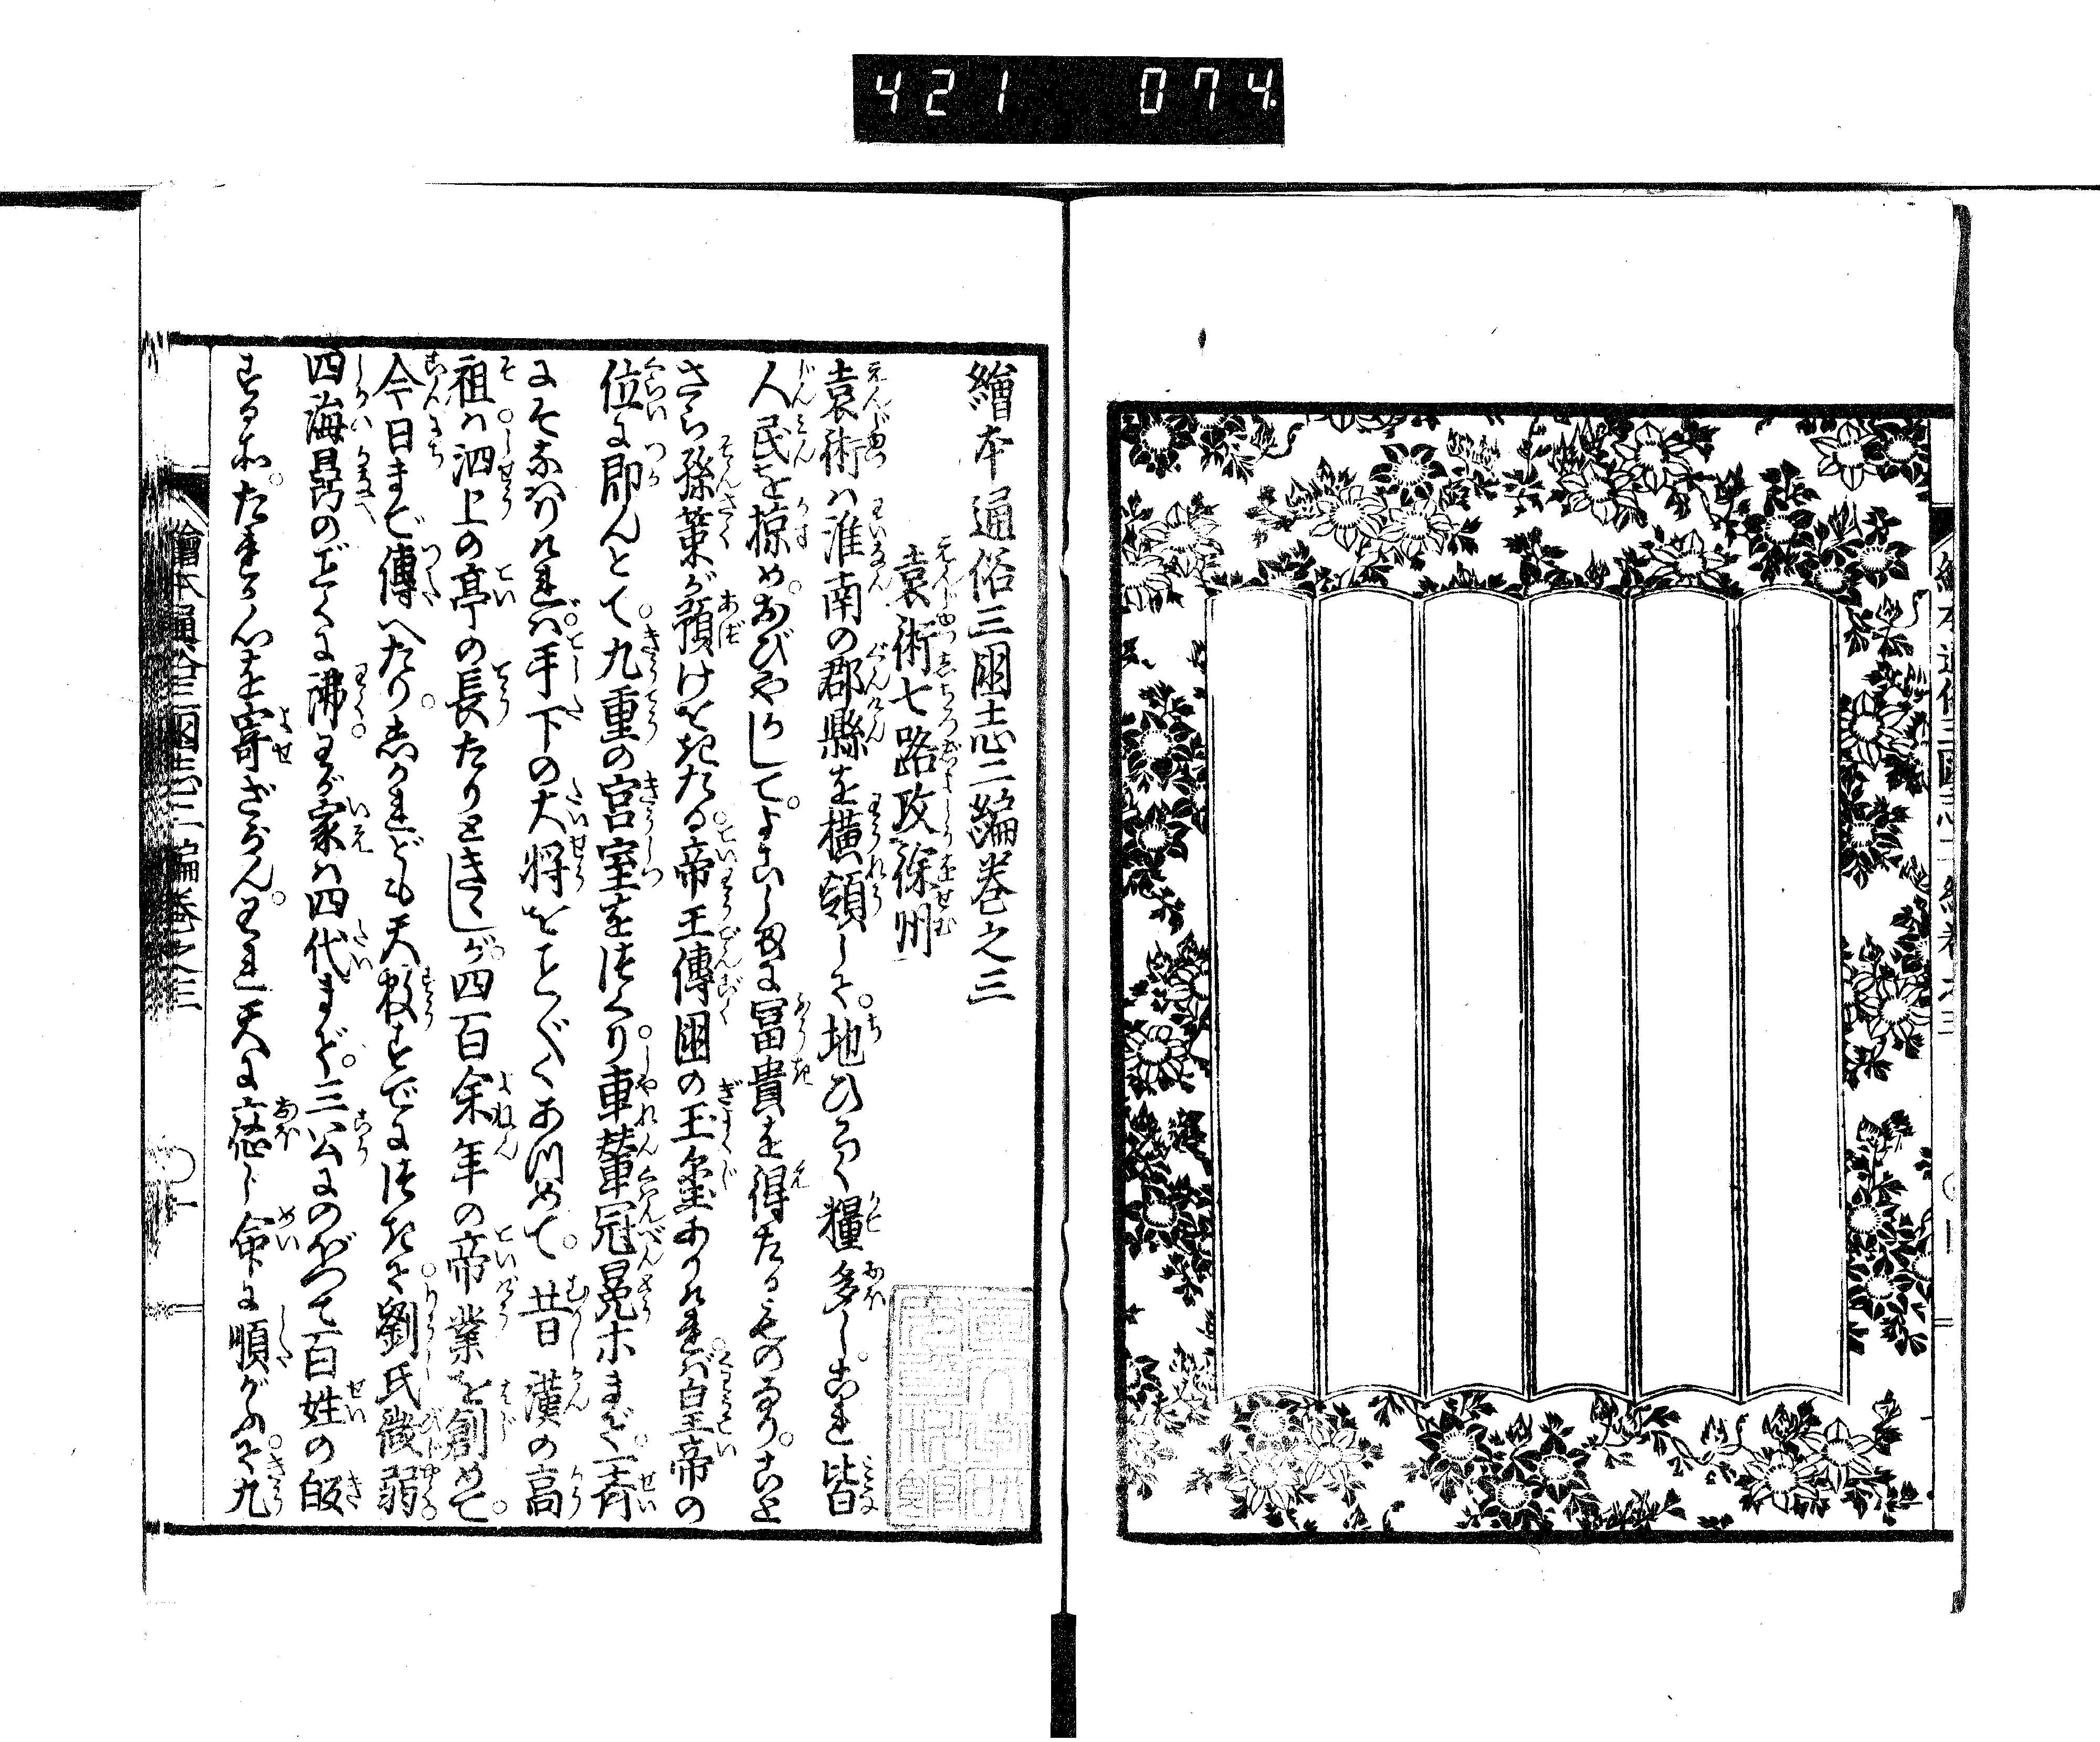 421 074
繪本通俗三國志二編巻之三
袁術七路攻徐州
袁術ハ淮南の郡縣を横領して。地ひろく糧多し。これ皆
人民を掠め。おびやかして。よこしまに冨貴を得たるものなり。こと
さら孫策が預けをきたる。帝王傳國の玉璽ありけれバ。皇帝の
位に即んとて。九重の宮室をつくり。車輦冠冕ホまで。一斉
にそなハりけれバ。手下の大将をこと〴〵くあつめて。昔漢の高
祖ハ。泗上の亭の長たりときこしが。四百余年の帝業を創めて。
今日まで傳へたり。しかれども天数すでにつきて。劉氏微弱。
四海鼎の上くに沸。わが家ハ四代まで。三公にのぼつて百姓の皈
するホ。たれか心を寄ざらん。われ天に應じ命に順がふて。九
繪本通俗三國志二編巻之三